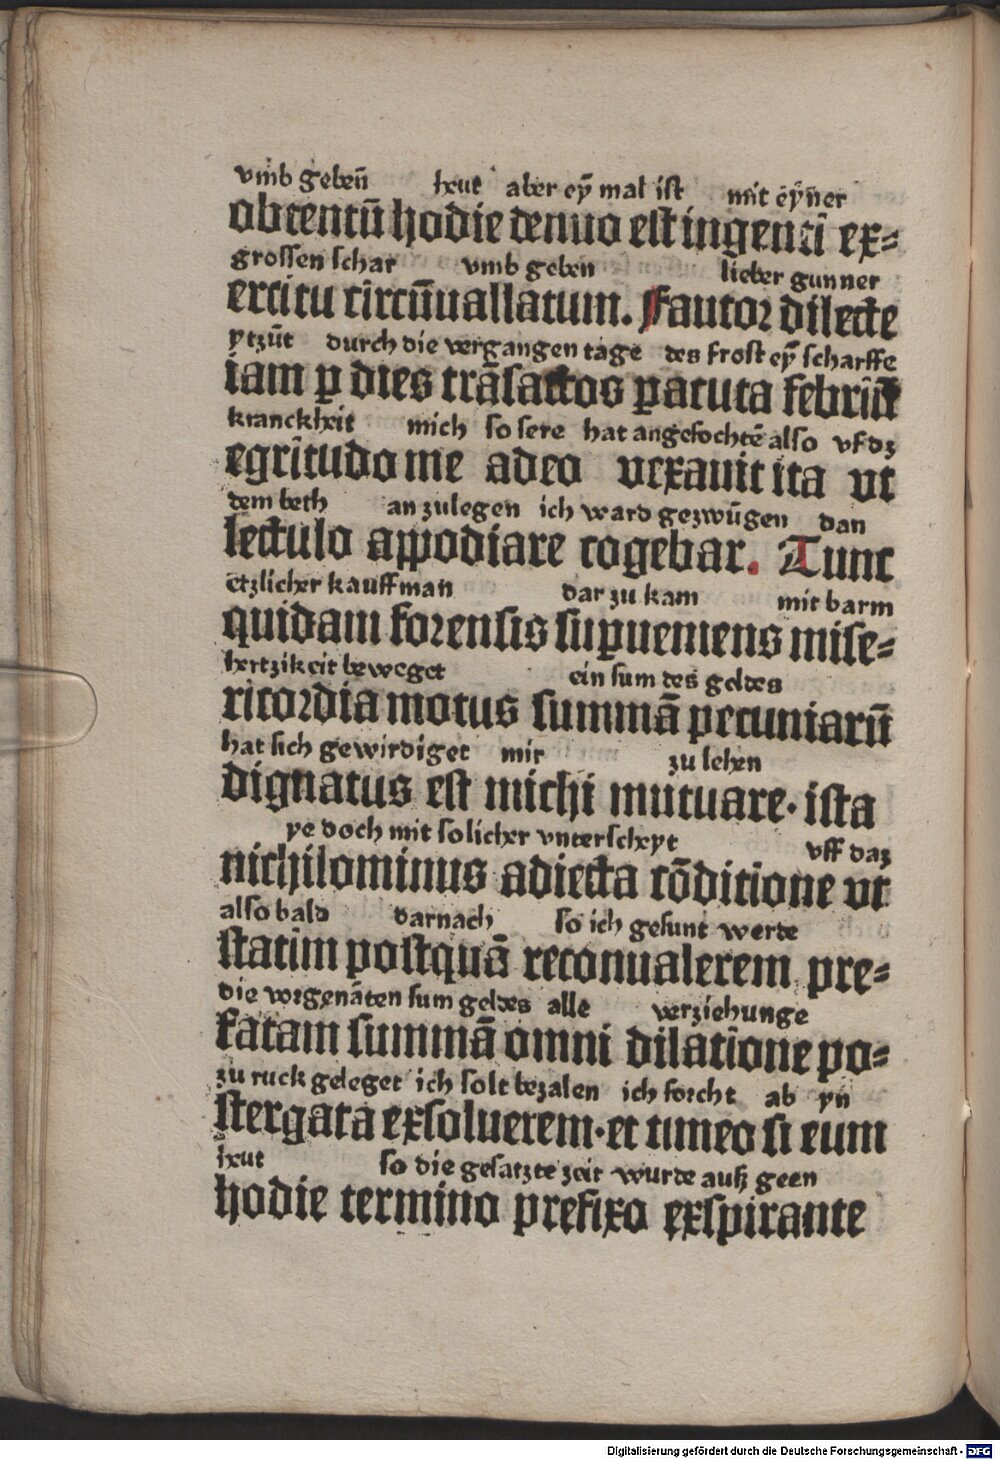 vmb gebēn heut aber eÿ mal ist mit eÿner
obtentū hodie denuo est ingenti ex⸗
grossen schar vmb geben lieber gunner
ercitu circūuallatum. Fautor dilecte
ytzūt durch die vergangen tage des frost eÿ scharffe
iam ꝑ dies trāsactos ꝑacuta febriū
kranckheit mich so sere hat angefochtē also vf dz
egritudo me adeo vexauit ita vt
dem beth an zulegen ich ward gezwūgen dan
lectulo appodiare cogebar. Tunc
etzlicher kauffman dar zu kam mit barm
quidam forensis suꝑueniens mise⸗
hertzikeit beweget ein sum des geldes
ricordia motus summā pecuniarū
hat sich gewirdiget mir zu lehen
dignatus est michi mutuare. ista
ye doch mit solicher vnterscheyt vff daz
nichilominus adiecta cōditione vt
also bald darnach so ich gesunt werde
statim postquā reconualerem pre⸗
die vorgenāten sum geldes alle verziehunge
fatam summā omni dilatione po⸗
zu ruck geleget ich solt bezalen ich forcht ab yn
stergata exsoluerem. et timeo si eum
heut so die gesatzte zeit wurde auß geen
hodie termino prefixo exspirante
Digitalisierung gefördert durch die Deutsche Forschungsgemeinschaft - DFG